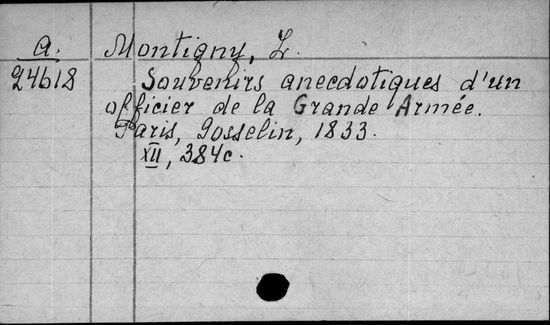 A.
24618
Montigny, L.
Souvenirs anecdotiques d'un
officier de la Grande Armée.
Paris, Gosselin, 1833.
XII, 384c.